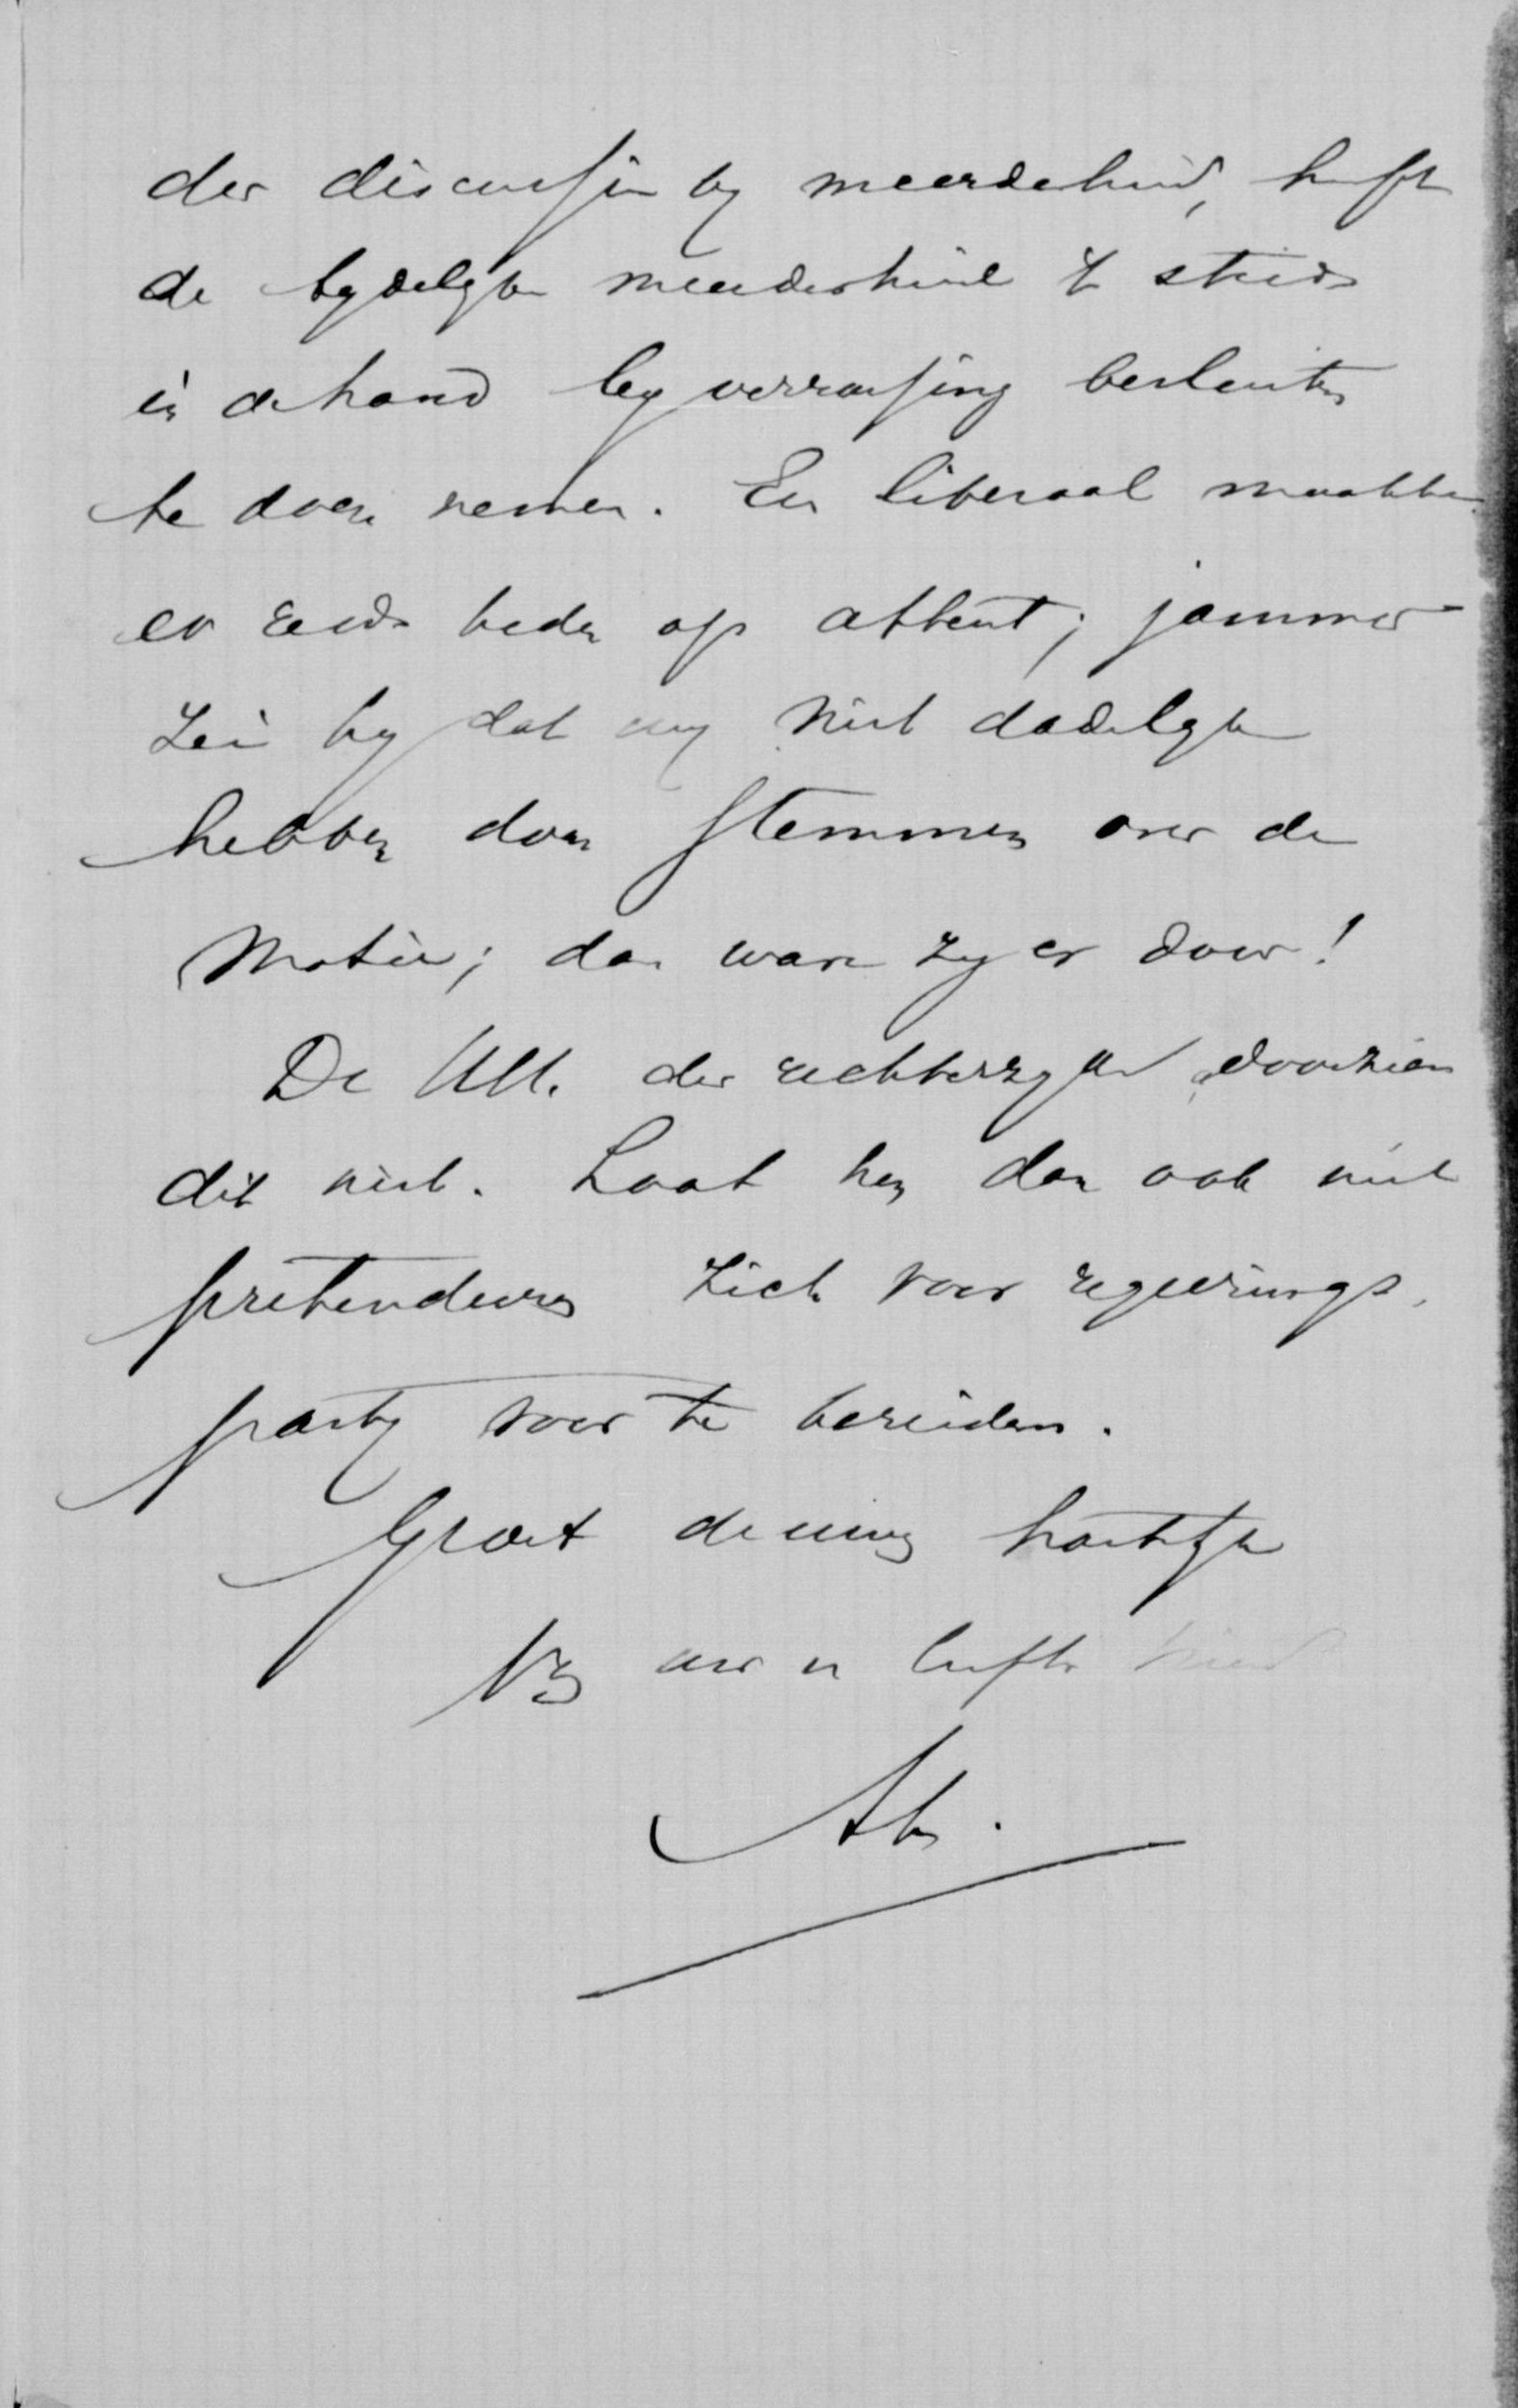 der discussien by meerderheid, heeft
de tydelyke meerderheid 't steeds
in de hand by verrassing besluiten
te doen nemen. Een liberaal maakte
er reeds heden op attent; jammer
zei hy dat wy niet dadelyk
hebben doen stemmen over de
motie; dan ware zy er door!
De UU. der rechterzyde doorzien
dit niet. Laat hen dan ook niet
pretendeeren zich voor regeerings-
party voor te bereiden.
Groet de uwen hartelyk